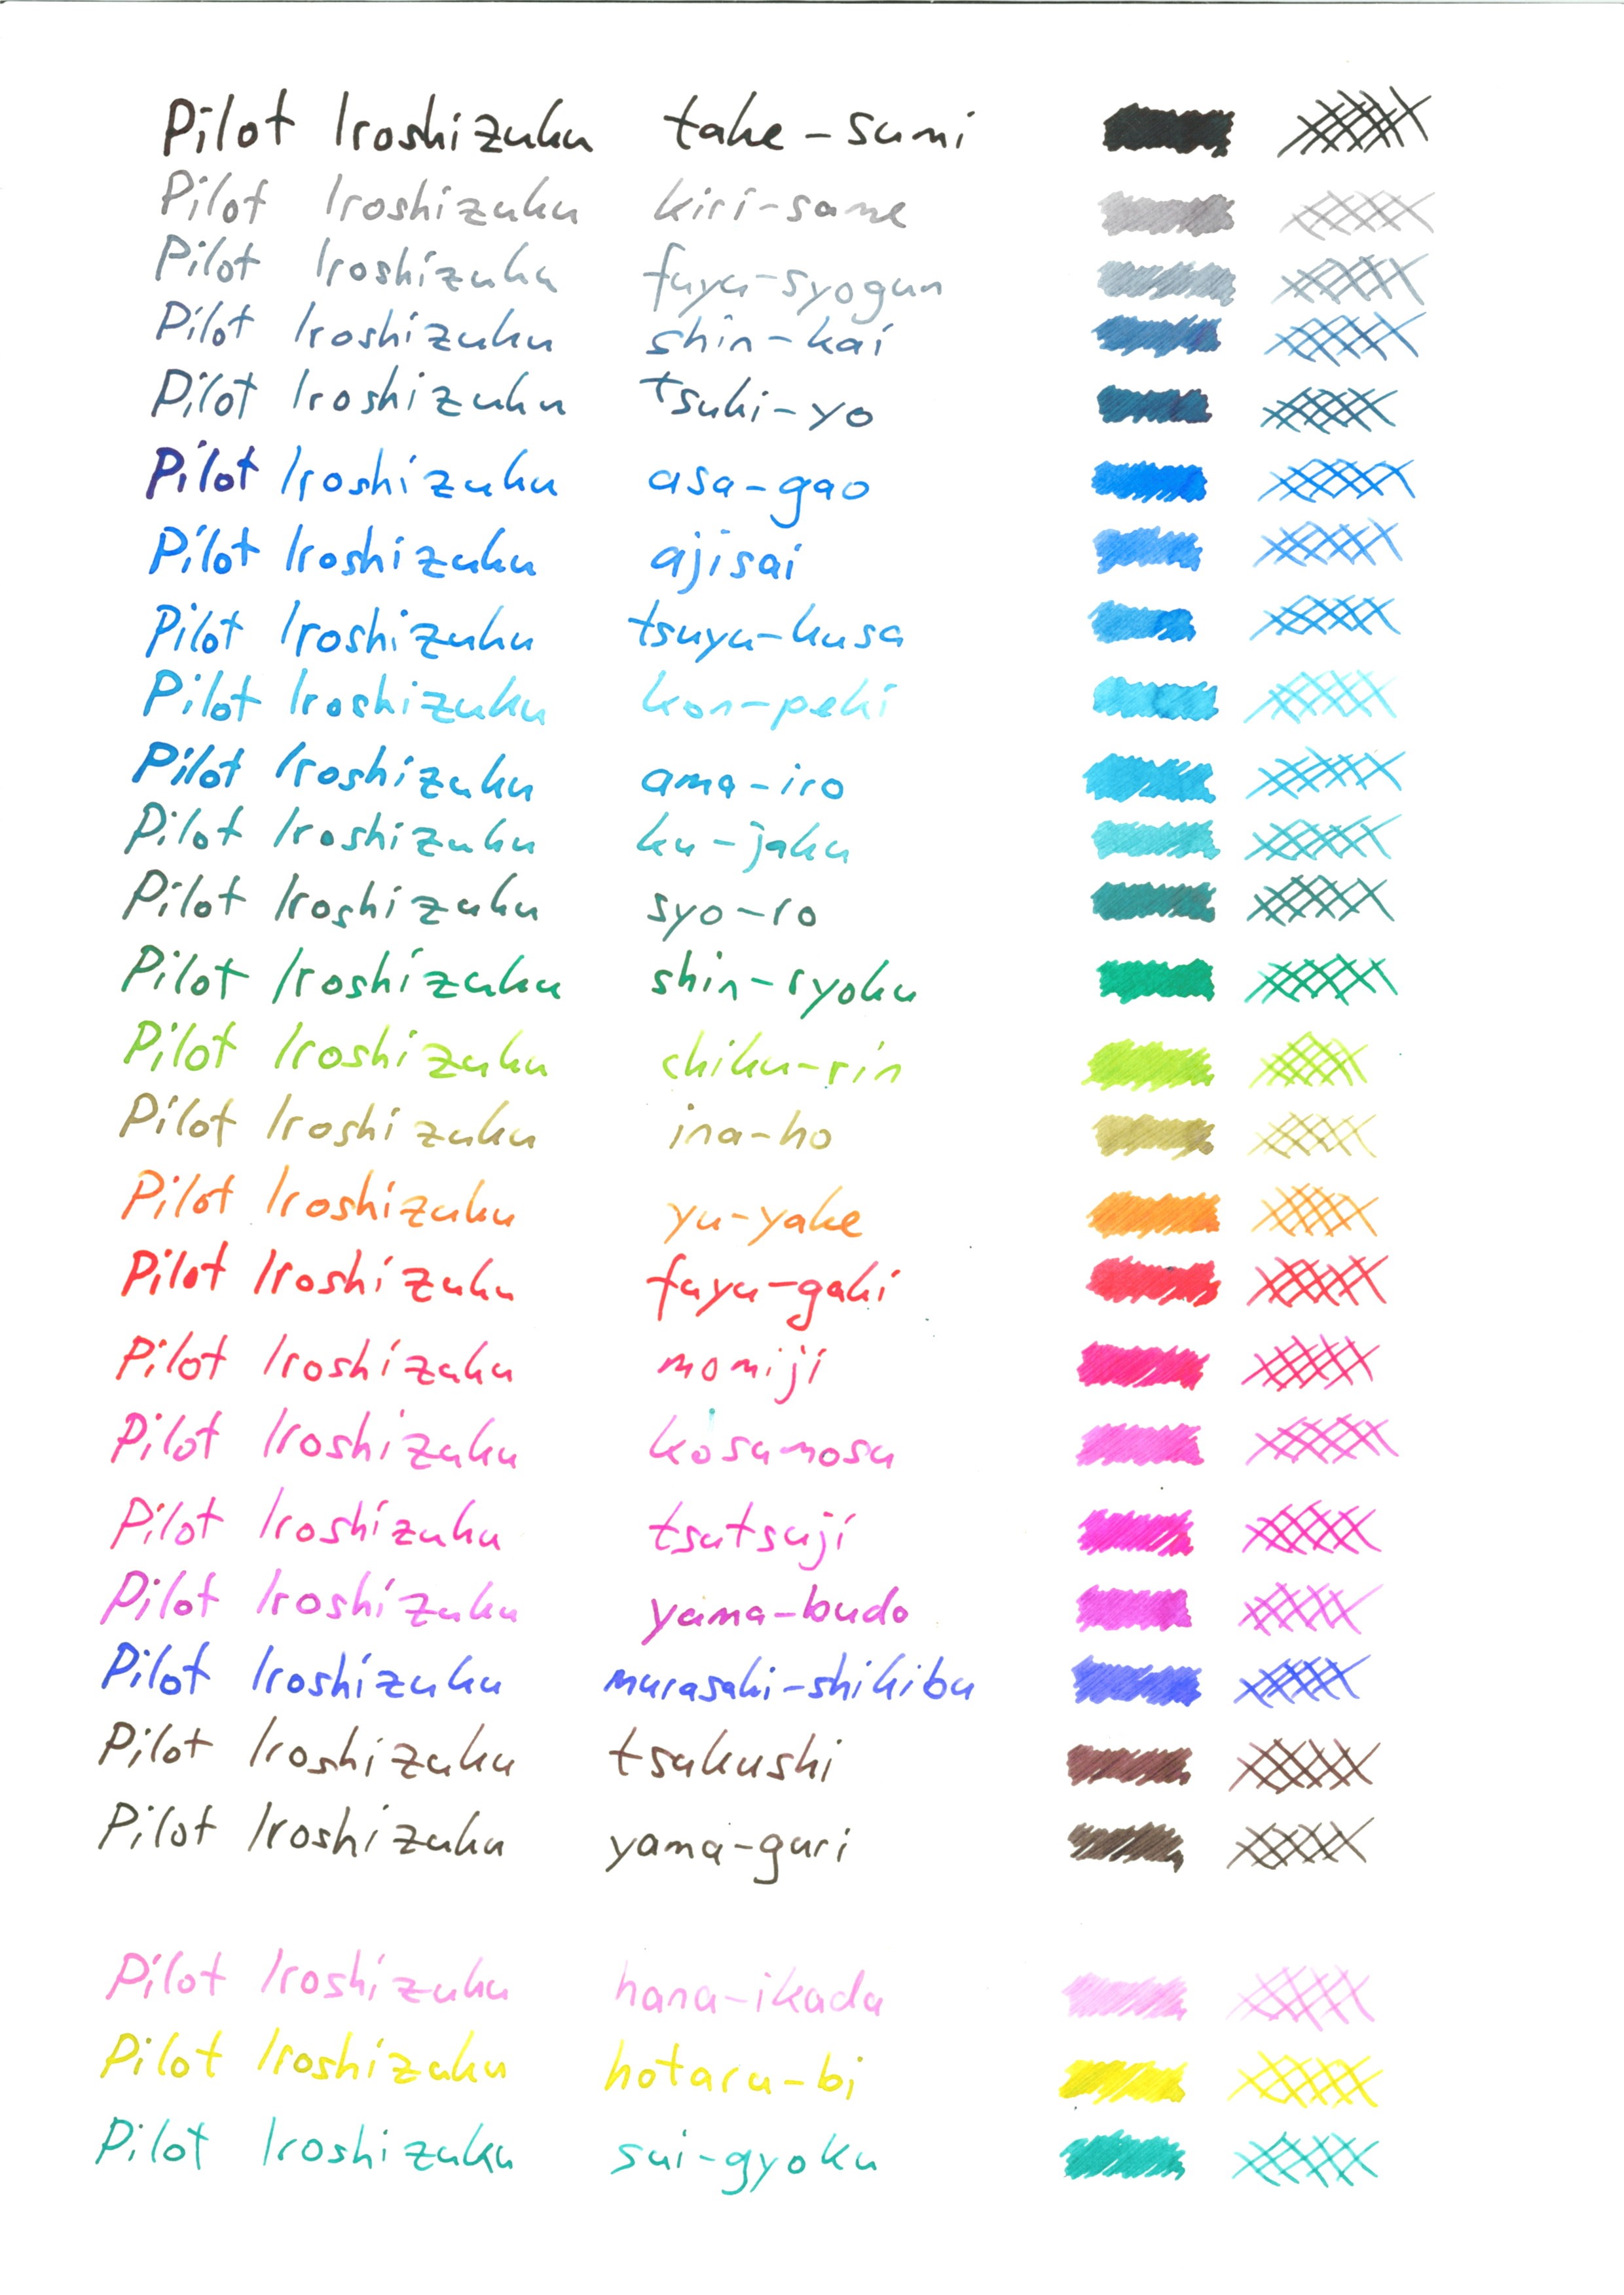 Pilot Iroshizuku take-sumi
Pilot Iroshizuku kiri-same
Pilot Iroshizuku fuyu-syogun
Pilot Iroshizuku shin-kai
Pilot Iroshizuku tsuki-yo
Pilot Iroshizuku asa-gao
Pilot Iroshizuku ajisai
Pilot Iroshizuku tsuyu-kusa
Pilot Iroshizuku kon-peki
Pilot Iroshizuku ama-iro
Pilot Iroshizuku ku-jaku
Pilot Iroshizuku syo-ro
Pilot Iroshizuku shin-ryoku
Pilot Iroshizuku chiku-rin
Pilot Iroshizuku ina-ho
Pilot Iroshizuku yu-yake
Pilot Iroshizuku fuyu-gaki
Pilot Iroshizuku momiji
Pilot Iroshizuku kosumosu
Pilot Iroshizuku tsutsuji
Pilot Iroshizuku yama-budo
Pilot Iroshizuku murasaki-shikibu
Pilot Iroshizuku tsukushi
Pilot Iroshizuku yama-guri
Pilot Iroshizuku hana-ikada
Pilot Iroshizuku hotaru-bi
Pilot Iroshizuku sui-gyoku